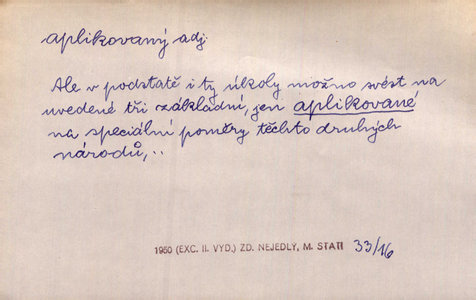 aplikovaný adj.
Ale v podstatě i ty úkoly možno svést na
uvedené tři základní, jen aplikované
na speciální poměry těchto druhých
národů,..
1950 (EXC. II. VYD.) ZD. NEJEDLÝ, M. STATI 33/16